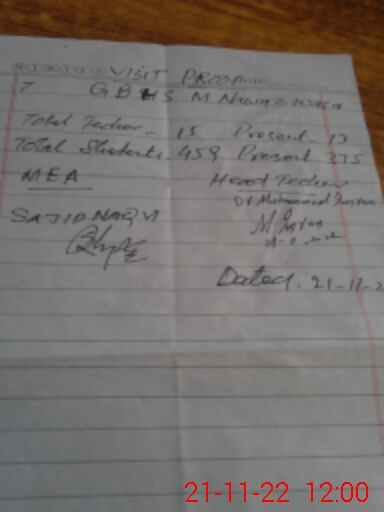 VISIT PROOF
GBHS M Nawaz
Total Techer - 15 Present - 13
Total Students 459 Present 375
MEA Head Techer
SAJID NAQVI Dr Muhammad Imran
M Imran
Dated. 21-11-2
21-11-22 12:00